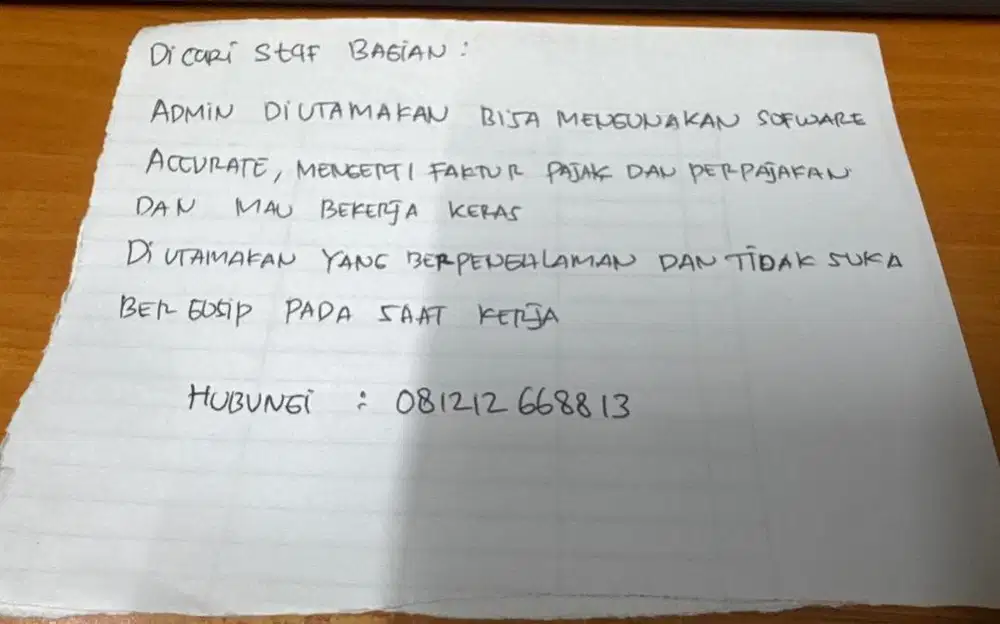 Dicari Staf BAGIAN :
ADMIN DIUTAMAKAN BISA MENGUNAKAN SOFWARE
ACCURATE, MENGERTI FAKTUR PAJAK DAN PERPAJAKAN
DAN MAU BEKERJA KERAS
DIUTAMAKAN YANG BERPENGALAMAN DAN TIDAK SUKA
BERGOSIP PADA SAAT KERJA
HUBUNGI : 081212 668813